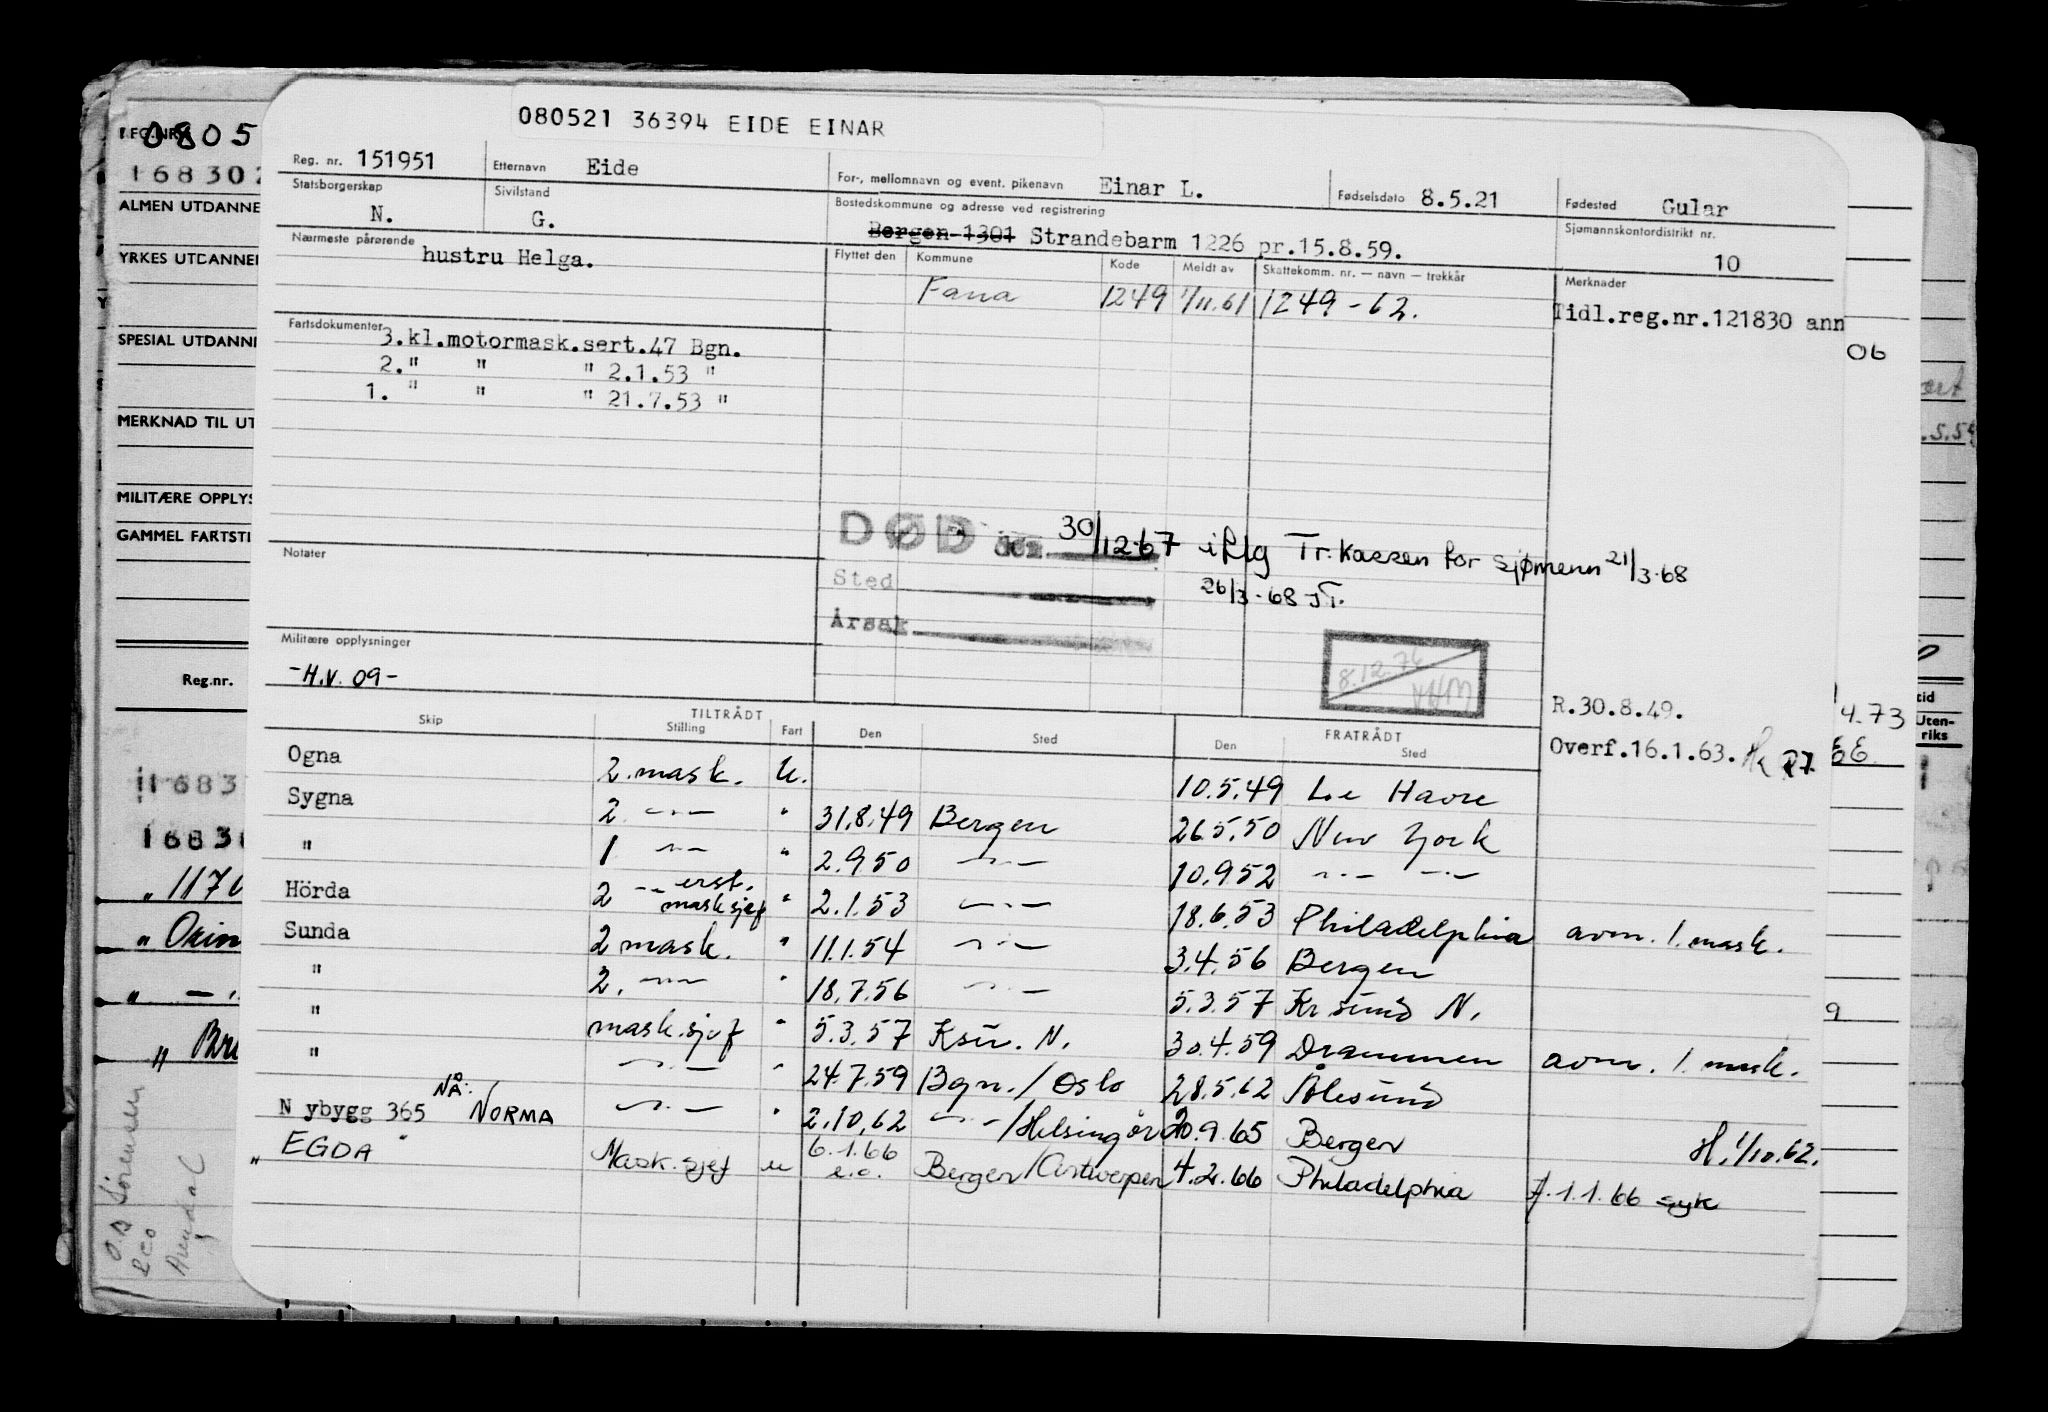 080521 36394 EIDE EINAR
Reg. nr. 151951 Etternavn Eide For-, mellomnavn og event. pikenavn Einar L. Fødselsdato 8.5.21 Fødested Gular
Statsborgerskap N. Sivilstand G. Bostedskommune og adresse ved registrering Bergen 1301 Strandebarm 1226 pr.15.8.59. Sjømannskontordistrikt nr. 10
Nærmeste pårørende hustru Helga. Flyttet den Kommune Kode Meldt av Skattekomm. nr. — navn — trekkår Merknader
Fana 1249 1/11.61 1249-62. Tidl.reg.nr.121830 ann
06
Fartsdokumenter 3.kl.motormask.sert.47 Bgn.
2." " " 2.1.53 "
1. " " " 21.7.53 "
DØD den 30/12-67 iflg Tr.kassen for sjømenn 21/3-68
Sted 26/3-68 JT.
Årsak
Notater
Militære opplysninger
-H.V. 09-
8.12.76
R.30.8.49.
Overf.16.1.63.
4.73
Skip TILTRÅDT Stilling Fart Den Sted FRATRÅDT Den Sted
Ogna 2.mask. U. 10.5.49 Le Havre
Sygna 2. -"- " 31.8.49 Bergen 26.5.50 New York
" 1 -"- " 2.9.50 -"- 10.9.52 -"- -"-
Hörda 2 -"- erst. masksjef " 2.1.53 -"- 18.6.53 Philadelphia avm. 1. mask.
Sunda 2 mask. " 11.1.54 -"- 3.4.56 Bergen
" 2. -"- " 18.7.56 -"- 5.3.57 Kr.sund N.
" mask.sjef " 5.3.57 Ksu. N. 30.4.59 Drammen avm. 1. mask.
" -"- " 24.7.59 Bgn./Oslo 28.5.62 Ålesund
N ybygg 365 NÅ: NORMA -"- " 2.10.62 -"-/Helsingør 20.9.65 Bergen H. 1/10.62.
" EGDA " Mask.sjef u 6.1.66 e.o. Bergen/Antwerpen 4.2.66 Philadelphia f.1.1.66 syk
REG.NR.
0805
168302
ALMEN UTDANNE
YRKES UTDANNE
SPESIAL UTDANNI
MERKNAD TIL UT
MILITÆRE OPPLYS
GAMMEL FARTSTI
Reg.nr.
1683
1683
" 1176
" Orin
" — "
" Bru
O.B Sørensen
&co
Arendal
.5.59
tid
Uten-
riks
9